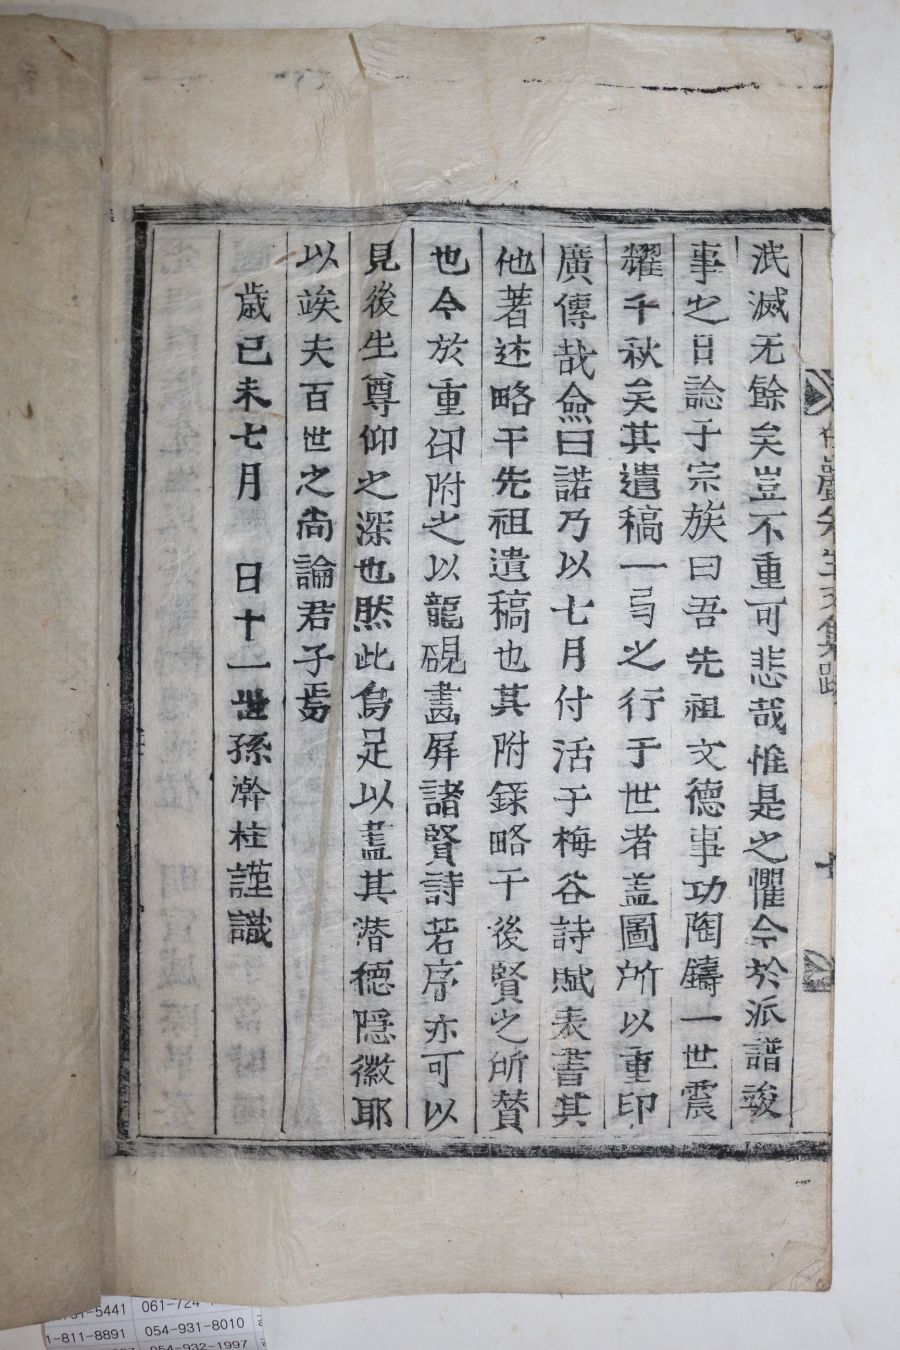 泯滅无餘矣豈不重可悲哉惟是之懼今於派譜竣
事之日諗于宗族曰吾先祖文德事功陶鑄一世震
耀千秋矣其遺稿一弓之行于世者盖圖所以重印
廣傳哉僉曰諾乃以七月付活于梅谷詩賦表書其
他著述略干先祖遺稿也其附錄略干後賢之所贊
也今於重印附之以龍硯畵屛諸賢詩若序亦可以
見後生尊仰之深也然此烏足以盖其潜德隠徽耶
以竢夫百世之尚論君子焉
歲己未七月 日十一世孫澣柱謹識
巖先生文集跋
5441 061-724
1-811-8891 054-931-8010
054-932-1997